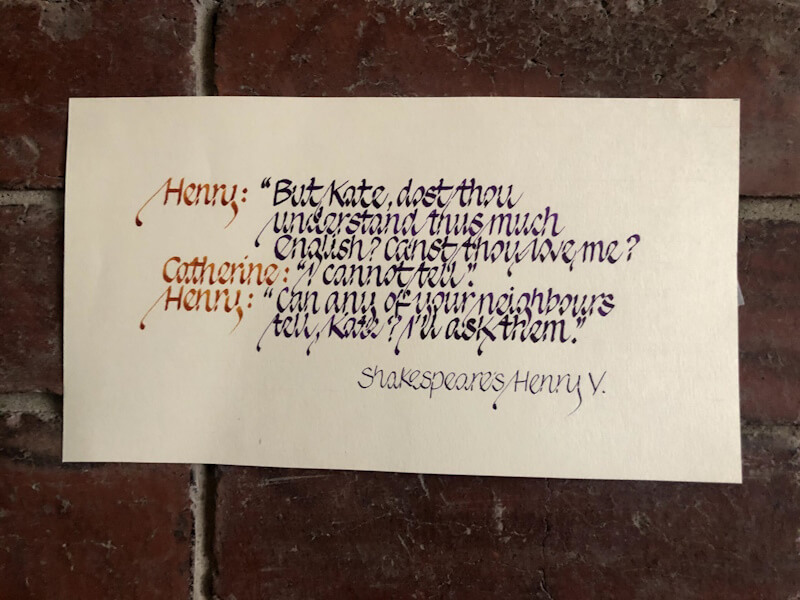 Henry: "But Kate, dost thou
understand thus much
English? Canst thou love me?
Catherine: "I cannot tell".
Henry: "Can any of your neighbours
tell, Kate? I'll ask them."
Shakespeare's Henry V.